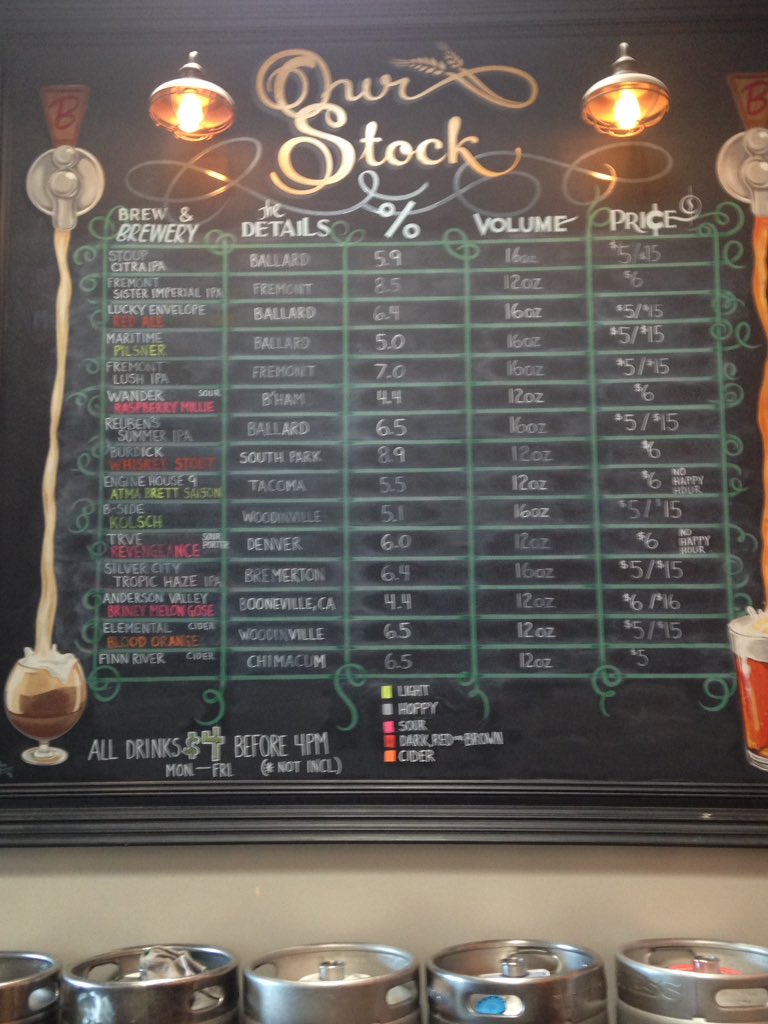 B
B
Our
Stock
BREW & BREWERY the DETAILS % VOLUME PRI¢E $
STOUP
CITRA IPA BALLARD 5.9 16oz $5/$15
FREMONT
SISTER IMPERIAL IPA FREMONT 8.5 12oz $6
LUCKY ENVELOPE
RED ALE BALLARD 6.4 16oz $5/$15
MARITIME
PILSNER BALLARD 5.0 16oz $5/$15
FREMONT
LUSH IPA FREMONT 7.0 16oz $5/$15
WANDER SOUR
RASPBERRY MILLIE B'HAM 4.4 12oz $6
REUBENS
SUMMER IPA BALLARD 6.5 16oz $5/$15
BURDICK
WHISKEY STOUT SOUTH PARK 8.9 12oz $6
ENGINE HOUSE 9
ATMA BRETT SAISON TACOMA 5.5 12oz $6 NO HAPPY HOUR
B-SIDE
KOLSCH WOODINVILLE 5.1 16oz $5/$15
TRVE SOUR PORTER
REVENGEANCE DENVER 6.0 12oz $6 NO HAPPY HOUR
SILVER CITY
TROPIC HAZE IPA BREMERTON 6.4 16oz $5/$15
ANDERSON VALLEY
BRINEY MELON GOSE BOONEVILLE, CA 4.4 12oz $6/$16
ELEMENTAL CIDER
BLOOD ORANGE WOODINVILLE 6.5 12oz $5/$15
FINN RIVER CIDER CHIMACUM 6.5 12oz $5
LIGHT
HOPPY
SOUR
DARK, RED BROWN
CIDER
ALL DRINKS $4 BEFORE 4PM
MON—FRI (* NOT INCL)